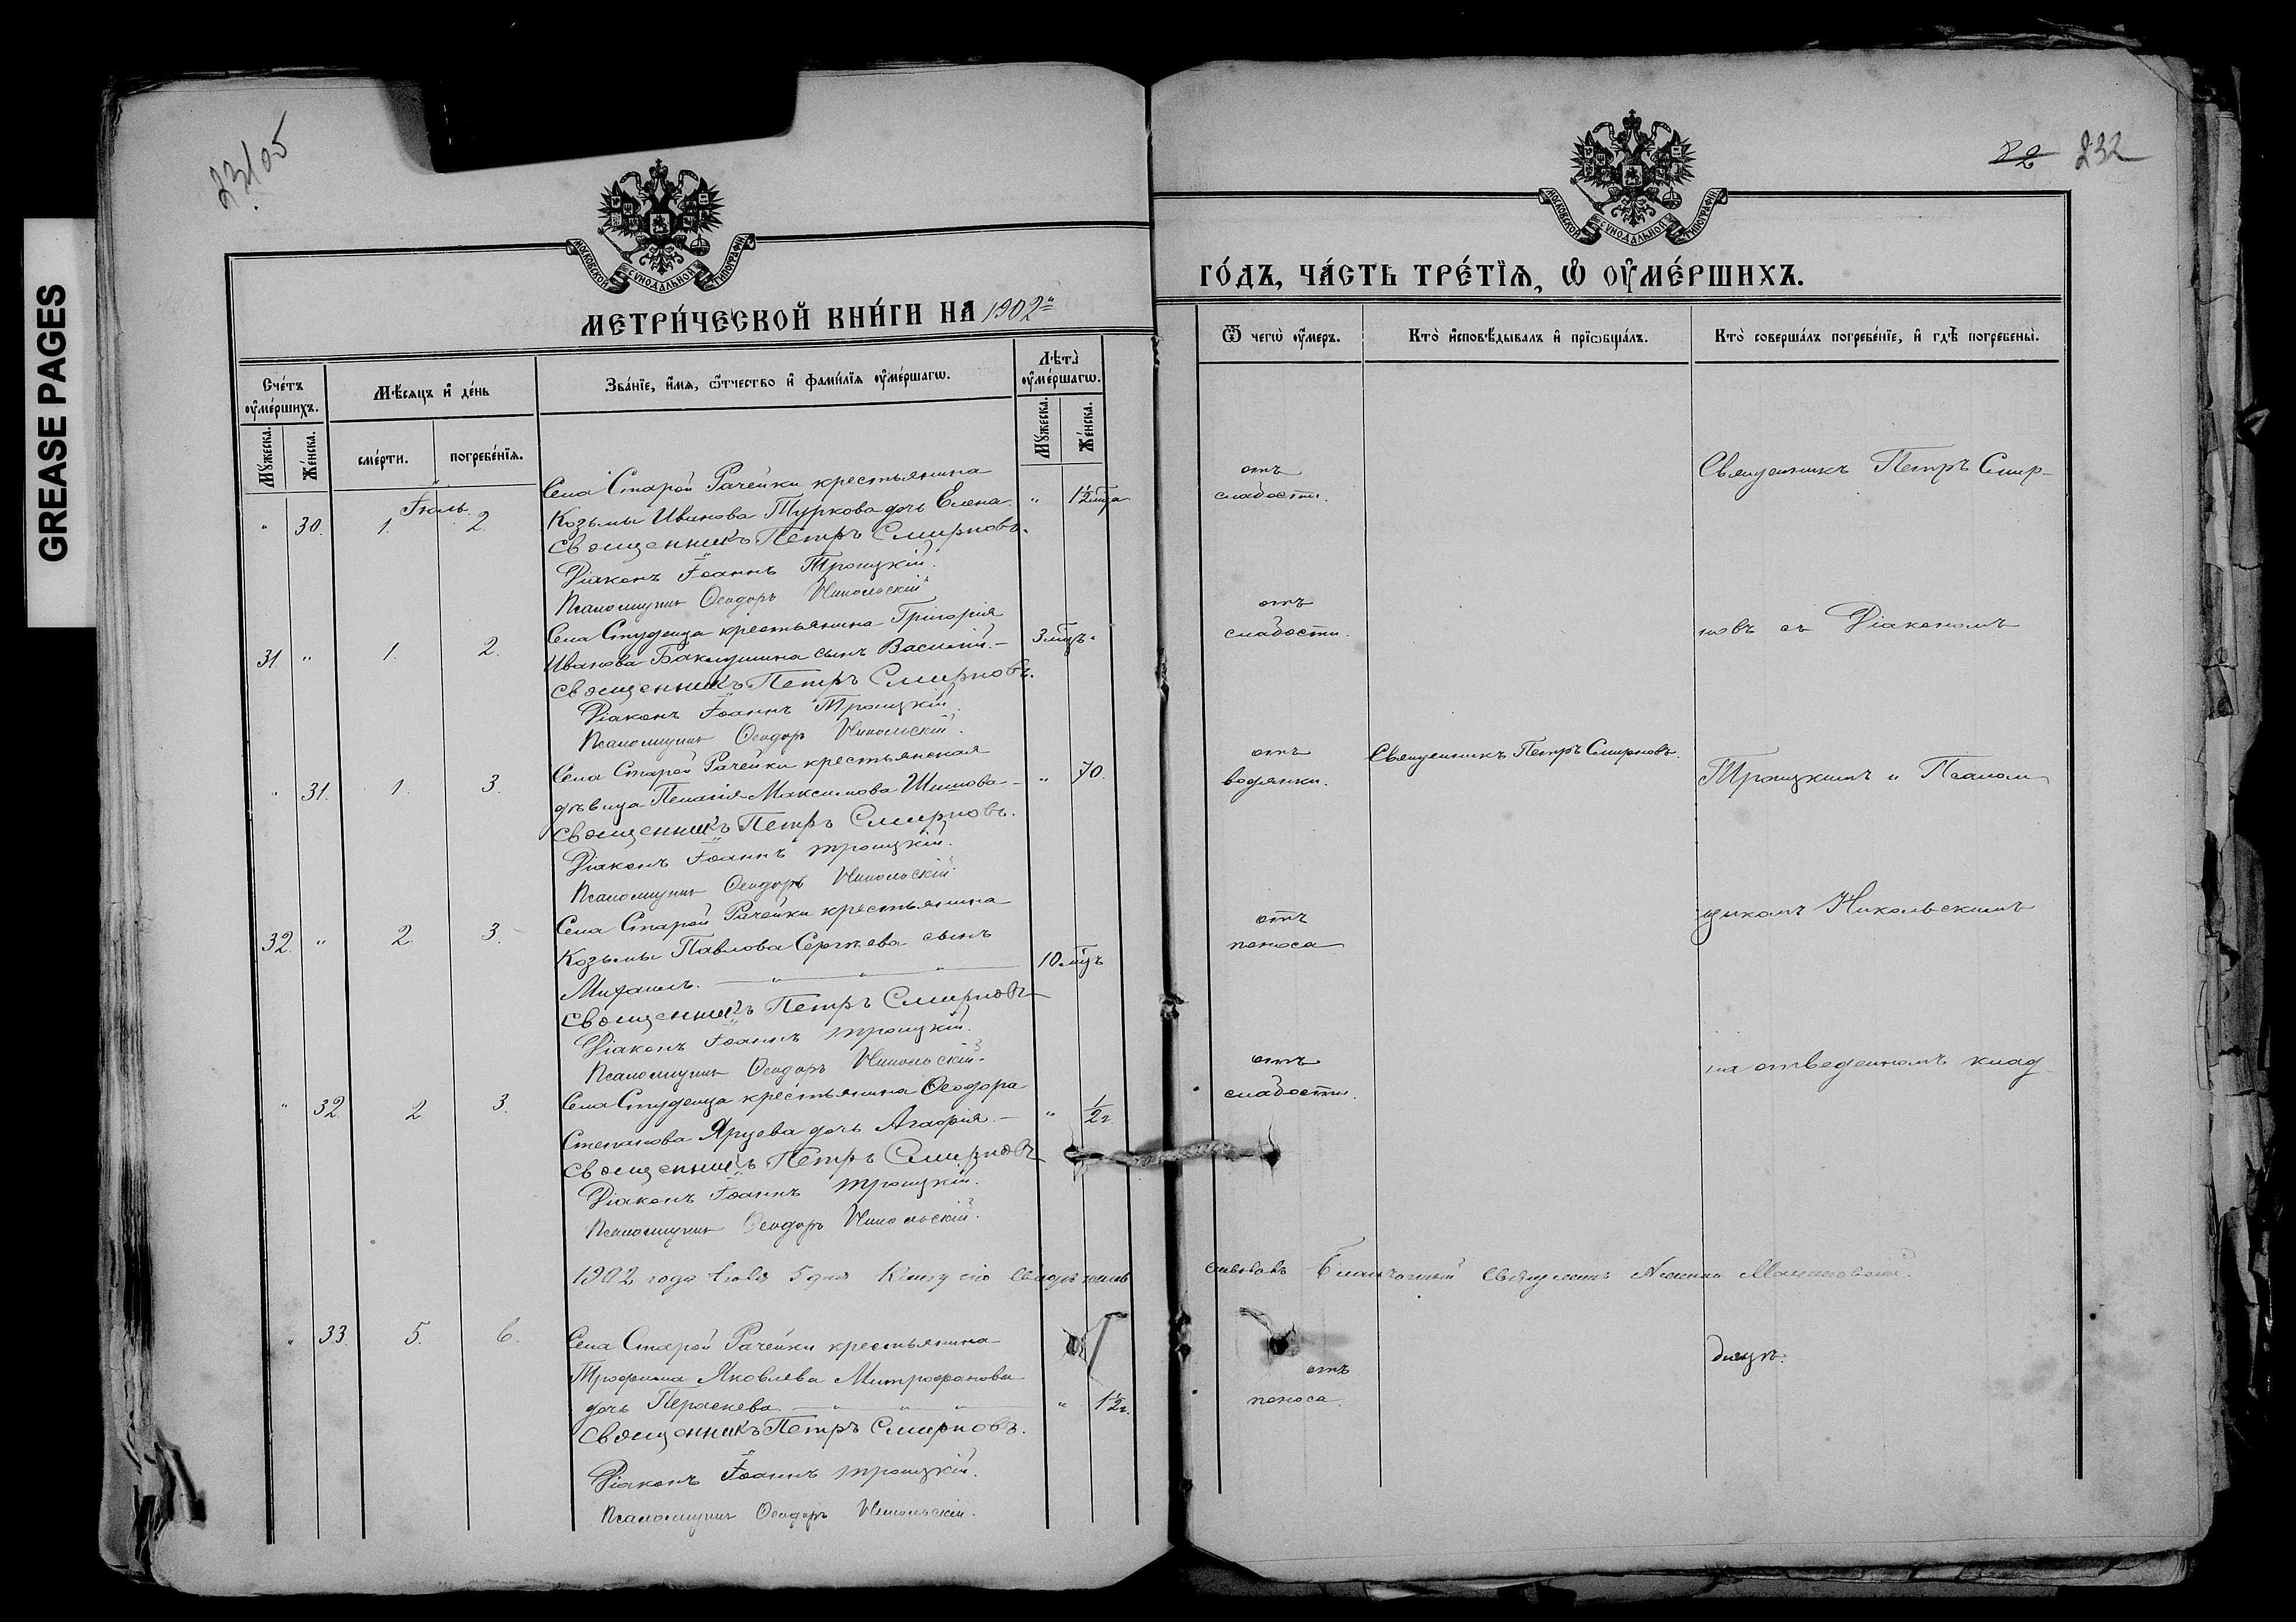 GREASE PAGES
МОСКОВСКОЙ СѴНОДАЛЬНОЙ ТИПОГРАФІИ
МЕТРИ́ЧЕСКОЙ КНИ́ГИ НА 1902й
Сче́тъ ѹ҆ме́ршихъ.
Мꙋжеска.
Же́нска.
Мѣ́сяцъ и҆ де́нь
сме́рти.
погребе́нїѧ.
Зва́нїе, и҆́мѧ, ѻ҆́тчество и҆ фами́лїѧ ѹ҆ме́ршагѡ.
Лѣ́та ѹ҆ме́ршагѡ.
Мꙋжеска.
Же́нска.
Іюль.
" 30. 1. 2.
Села Старой Рачейки крестьянина
Козьмы Иванова Туркова дочь Елена. " 1½ мца
Священникъ Петръ Смирновъ.
Діаконъ Іоаннъ Троицкій.
Псаломщикъ Ѳеодоръ Никольскій
31 " 1. 2.
Села Студенца крестьянина Григорія
Иванова Баклушина сынъ Василій. – 3 мцъ.
Священникъ Петръ Смирновъ.
Діаконъ Іоаннъ Троицкій.
Псаломщикъ Ѳеодоръ Никольскій.
" 31. 1. 3.
Села Старой Рачейки крестьянская
дѣвица Пелагія Максимова Шишова – " 70.
Священникъ Петръ Смирновъ.
Діаконъ Іоаннъ Троицкій.
Псаломщикъ Ѳеодоръ Никольскій.
32. " 2. 3.
Села Старой Рачейки крестьянина
Козьмы Павлова Сергѣева сынъ
Михаилъ. 10 мцъ
Священникъ Петръ Смирновъ
Діаконъ Іоаннъ Троицкій.
Псаломщикъ Ѳеодоръ Никольскій.
" 32 2 3.
Села Студенца крестьянина Ѳеодора
Степанова Ярцева дочь Агафія. – " ½ г.
Священникъ Петръ Смирновъ
Діаконъ Іоаннъ Троицкій.
Псаломщикъ Ѳеодоръ Никольскій.
1902 года Іюля 5 дня Книгу сію
" 33. 5. 6.
Села Старой Рачейки крестьянина
Трофима Яковлева Митрофанова
дочь Параскева. " 1½ г.
Священникъ Петръ Смирновъ.
Діаконъ Іоаннъ Троицкій.
Псаломщикъ Ѳеодоръ Никольскій.
82 232
МОСКОВСКОЙ СѴНОДАЛЬНОЙ ТИПОГРАФІИ
ГО́ДЪ, ЧА́СТЬ ТРЕ́ТЇѦ, Ѡ҆ ОУ҆МЕ́РШИХЪ.
Ѿ чегѡ̀ ѹ҆́меръ.
Кто̀ и҆сповѣ́дывалъ и҆ прїѡбща́лъ.
Кто̀ соверша́лъ погребе́нїе, и҆ гдѣ̀ погребены̀.
отъ
слабости.
Священникъ Петръ Смир-
отъ
слабости.
новъ съ Діакономъ
отъ
водянки.
Священникъ Петръ Смирновъ.
Троицкимъ и Псалом
отъ
поноса
щикомъ Никольскимъ
отъ
слабости.
на отведенномъ клад
Благочинный Священникъ
отъ
поноса.
бищѣ.